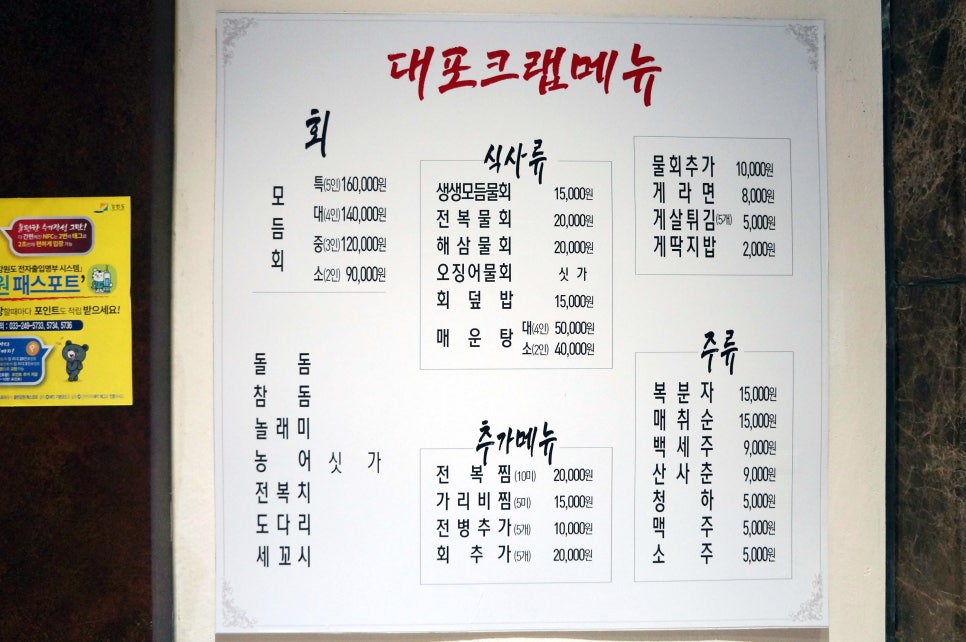 대포크랩메뉴
회
모듬회
특(5인) 160,000원
대(4인) 140,000원
중(3인) 120,000원
소(2인) 90,000원
돌 돔
참 돔
놀래미
농 어 싯 가
전복치
도다리
세꼬시
식사류
생생모듬물회 15,000원
전복물회 20,000원
해삼물회 20,000원
오징어물회 싯가
회덮밥 15,000원
매운탕 대(4인) 50,000원
소(2인) 40,000원
추가메뉴
전복찜(10미) 20,000원
가리비찜(5미) 15,000원
전병추가(5개) 10,000원
회추가(5개) 20,000원
물회추가 10,000원
게라면 8,000원
게살튀김(5개) 5,000원
게딱지밥 2,000원
주류
복분자 15,000원
매취순 15,000원
백세주 9,000원
산사춘 9,000원
청하 5,000원
맥주 5,000원
소주 5,000원
강원도
다 간편하게 NFC는 2번의 태그로
2초만에 편하게 입장 가능
강원도 전자출입명부 시스템」
원 패스포트'
할때마다 포인트도 적립 받으세요!
: 033-249-5733, 5734, 5736